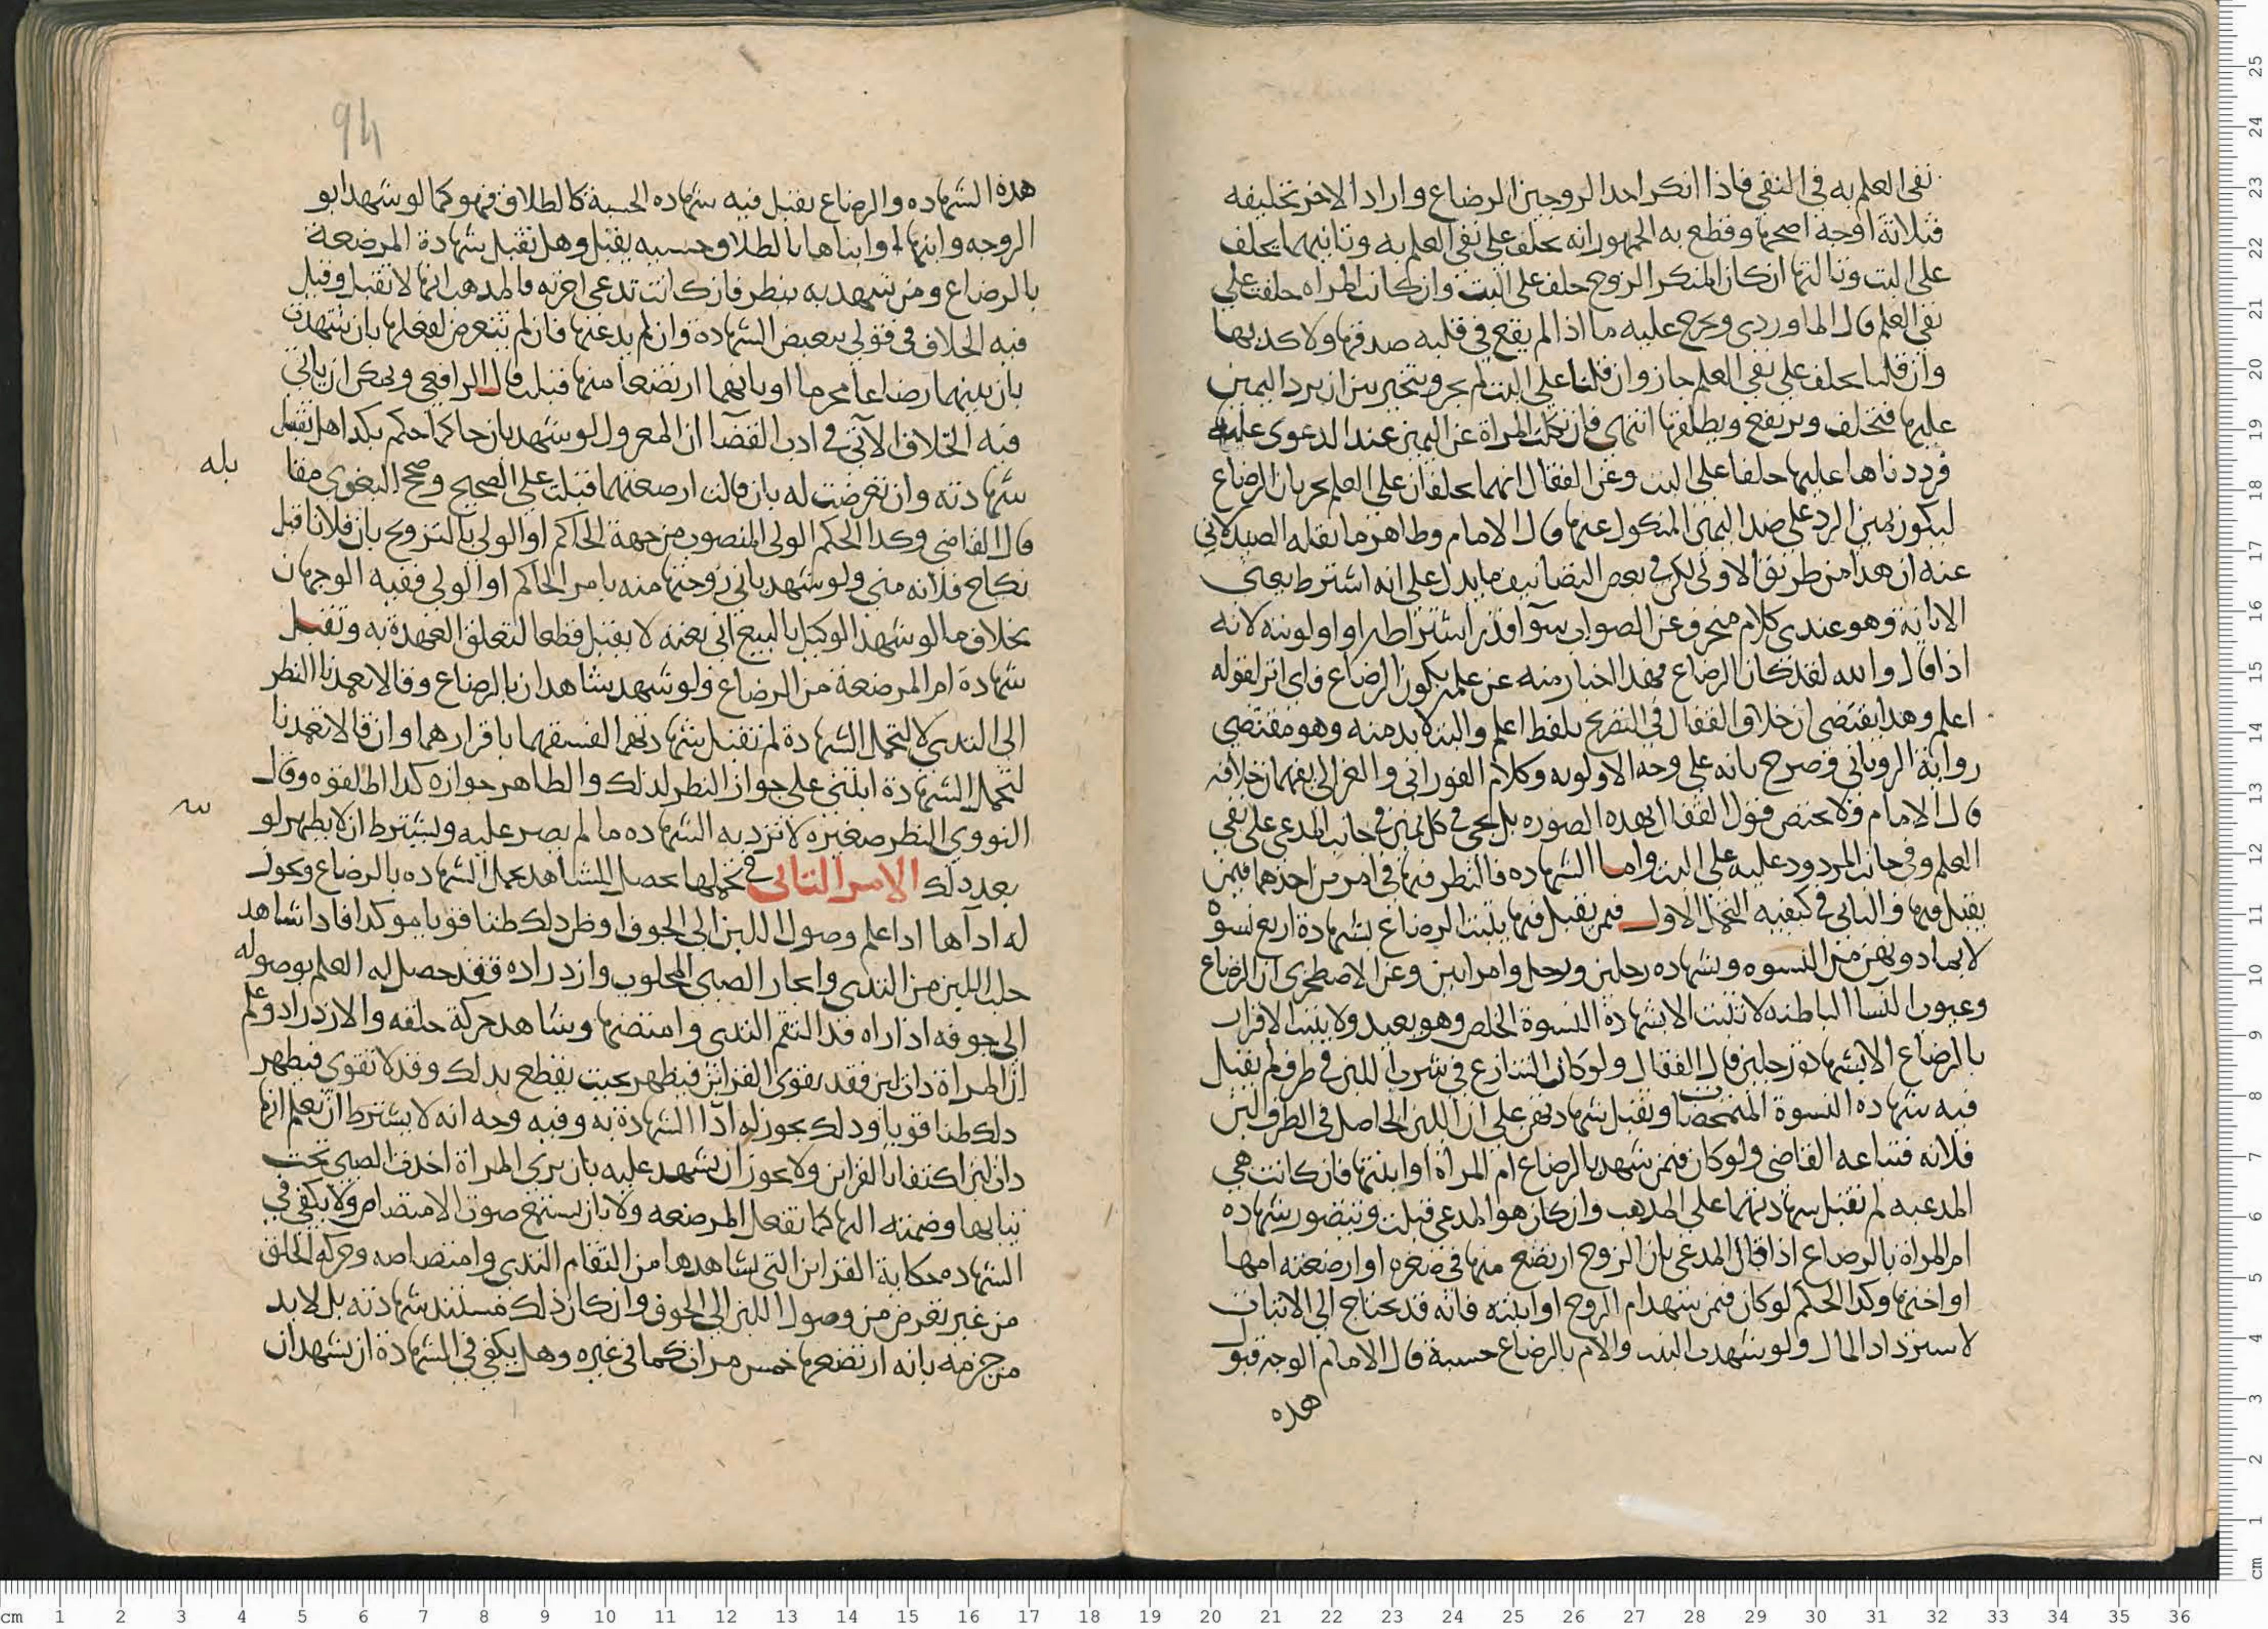 نفي العلم به في النفي فاذا انكر احد الزوجين الرضاع واراد الاخر تحليفه
فثلاثة اوجه اصحها وقطع به الجمهور انه يحلف على نفي العلم به وثانيهما يحلف
على البت وثالثها ان كان المنكر الزوج حلف على البت وان كانت المراه حلفت على
نفي العلم قال الماوردي ويخرج عليه ما اذا لم يقع في قلبه صدقها ولا كذبها
وان قلنا يحلف على نفي العلم جاز وان قلنا على البت لم يجز ويتخير بين ان يرد اليمين
عليها فتحلف ويرتفع ويطلقها انتهى فان نكلت المراة عن اليمين عند الدعوى عليها
فرددناها عليه حلفا على البت وعن القفال انهما يحلفان على العلم بجريان الرضاع
ليكون يمين الرد على ضد اليمين المنكول عنها قال الامام وظاهر ما نقله الصيدلاني
عنه ان هذا من طريق الاولى لكن في بعض التصانيف ما يدل على انه اشترط يعني
الابانة وهو عندي كلام منحرف عن الصواب سوآ قدر اشتراطه او اولويته لانه
اذا قال والله لقد كان الرضاع فهذا اخبار منه عن علمه بكون الرضاع فاي اثر لقوله
اعلم وهذا يقتضي ان خلاف القفال في التصريح بلفظ اعلم والبت لا بد منه وهو مقتضى
رواية الروياني وصرح بانه على وجه الاولويه وكلام الفوراني والغزالي يفهمان خلافه
قال الامام ولا يختص قول القفال بهذه الصوره بل يجي في كل يمين في جانب المدعى على نفي
العلم وفي جانب المردود عليه على البت واما الشهاده فالنظر فيها في امرين احدهما فيمن
يقبل فيها والثاني في كيفية التحمل الاول فيمن يقبل فيها يثبت الرضاع بشهادة اربع نسوة
لا بما دونهن من النسوه وبشهاده رجلين ورجل وامراتين وعن الاصطخري ان الرضاع
وعيوب النسا الباطنه لا تثبت الا بشهادة النسوة الخلص وهو بعيد ولا يثبت الاقرار
بالرضاع الا بشهادة رجلين قال القفال ولو كان التنازع في شرب اللبن في ظرف لم يقبل
فيه شهاده النسوة المتمحضات وتقبل شهادتهن على ان اللبن الحاصل في الظرف لبن
فلانه قتباعه القاضي ولو كان فيمن شهد بالرضاع ام المراة او ابنتها فان كانت هي
المدعيه لم تقبل شهادتهما على المذهب وان كان هو المدعي قبلت وتتصور شهاده
ام المراة بالرضاع اذا قال المدعي بان الزوج ارتضع منها في صغره او ارضعته امها
او اختها وكذا الحكم لو كان فيمن شهد ام الزوج او ابنته فانه قد يحتاج الى الاثبات
لاسترداد المال ولو شهدت البنت والام بالرضاع حسبة قال الامام الوجه قبول
هذه
94
هذه الشهاده والرضاع يقبل فيه شهاده الحسبة كالطلاق فهو كما لو شهد ابو
الزوجه وابنها او ابناها بالطلاق حسبه يقبل وهل تقبل شهادة المرضعة
بالرضاع ومن تشهد به ينظر فان كانت تدعي اجرته فالمذهب انها لا تقبل وقيل
فيه الخلاف في قولي تبعيض الشهادة وان لم يدعنها فان لم تتعرض لفعلها بان شهدت
بان بينهما رضاعا محرما او بانهما ارتضعا منها قبلت قال الرافعي ويمكن ان ياتي
فيه الخلاف الاتي في ادب القضآ ان المعزول لو شهد بان حاكما حكم بكذا هل تقبل
بله
شهادته وان تعرضت له بان قالت ارضعتهما قبلت على الصحيح وصحح البغوي مقا
قال القاضي وكذا الحكم الولي المنصوب من جهة الحاكم او الولي بالتزويج بان فلانا قبل
نكاح فلانه مني ولو شهد باني زوجتها منه بامر الحاكم او الولي ففيه الوجهان
بخلاف ما لو شهد الوكيل بالبيع اني بعته لا يقبل قطعا لتعلق العهدة به وتقبل
شهادة ام المرضعة من الرضاع ولو شهد شاهدان بالرضاع وقالا تعمدنا النظر
الى الثدي لا لتحمل الشهادة لم تقبل شهادتهما لفسقهما باقرارهما وان قالا تعمدنا
لتحمل الشهادة ابتني على جواز النظر لذلك والظاهر جوازه كذا اطلقوه وقال
سه
النووي النظر صغيره لا ترد به الشهاده ما لم يصر عليه ويشترط ان لا يظهر لو
بعد ذلك الامر الثاني في تحملها يحصل المشاهد تحمل الشهاده بالرضاع ويجوز
له ادآها اذا علم وصول اللبن الى الجوف او ظن ذلك ظنا قويا موكدا فاذا شاهد
حلب اللبن من الثدي وايجار الصبي المحلوب وازدراده فقد حصل له العلم بوصوله
الى جوفه اذا راه قد التقم الثدي وامتصها وشاهد حركة حلقه والازدراد وعلم
ان المراة ذات لبن فقد يقوى القراين فيظهر بحيث يقطع بذلك وقد لا تقوى فيظهر
ذلك ظنا قويا وذلك يجوز له ادآ الشهادة به وفيه وجه انه لا يشترط ان تعلم انها
ذات لبن اكتفا بالقراين ولا يجوز ان يشهد عليه بان يرى المراة اخذت الصبي تحت
ثيابها وضمته اليها كما تفعل المرضعه ولا بان يستمع صوت الامتصاص ولا يكفي في
الشهاده حكاية القراين التي شاهدها من التقام الثدي وامتصاصه وحركه الحلق
من غير تعرض من وصول اللبن الى الجوف وان كان ذلك مستند شهادته بل لا بد
من جزمه بانه ارتضع خمس مرات كما في غيره وهل يكفي في الشهادة ان يشهد ان